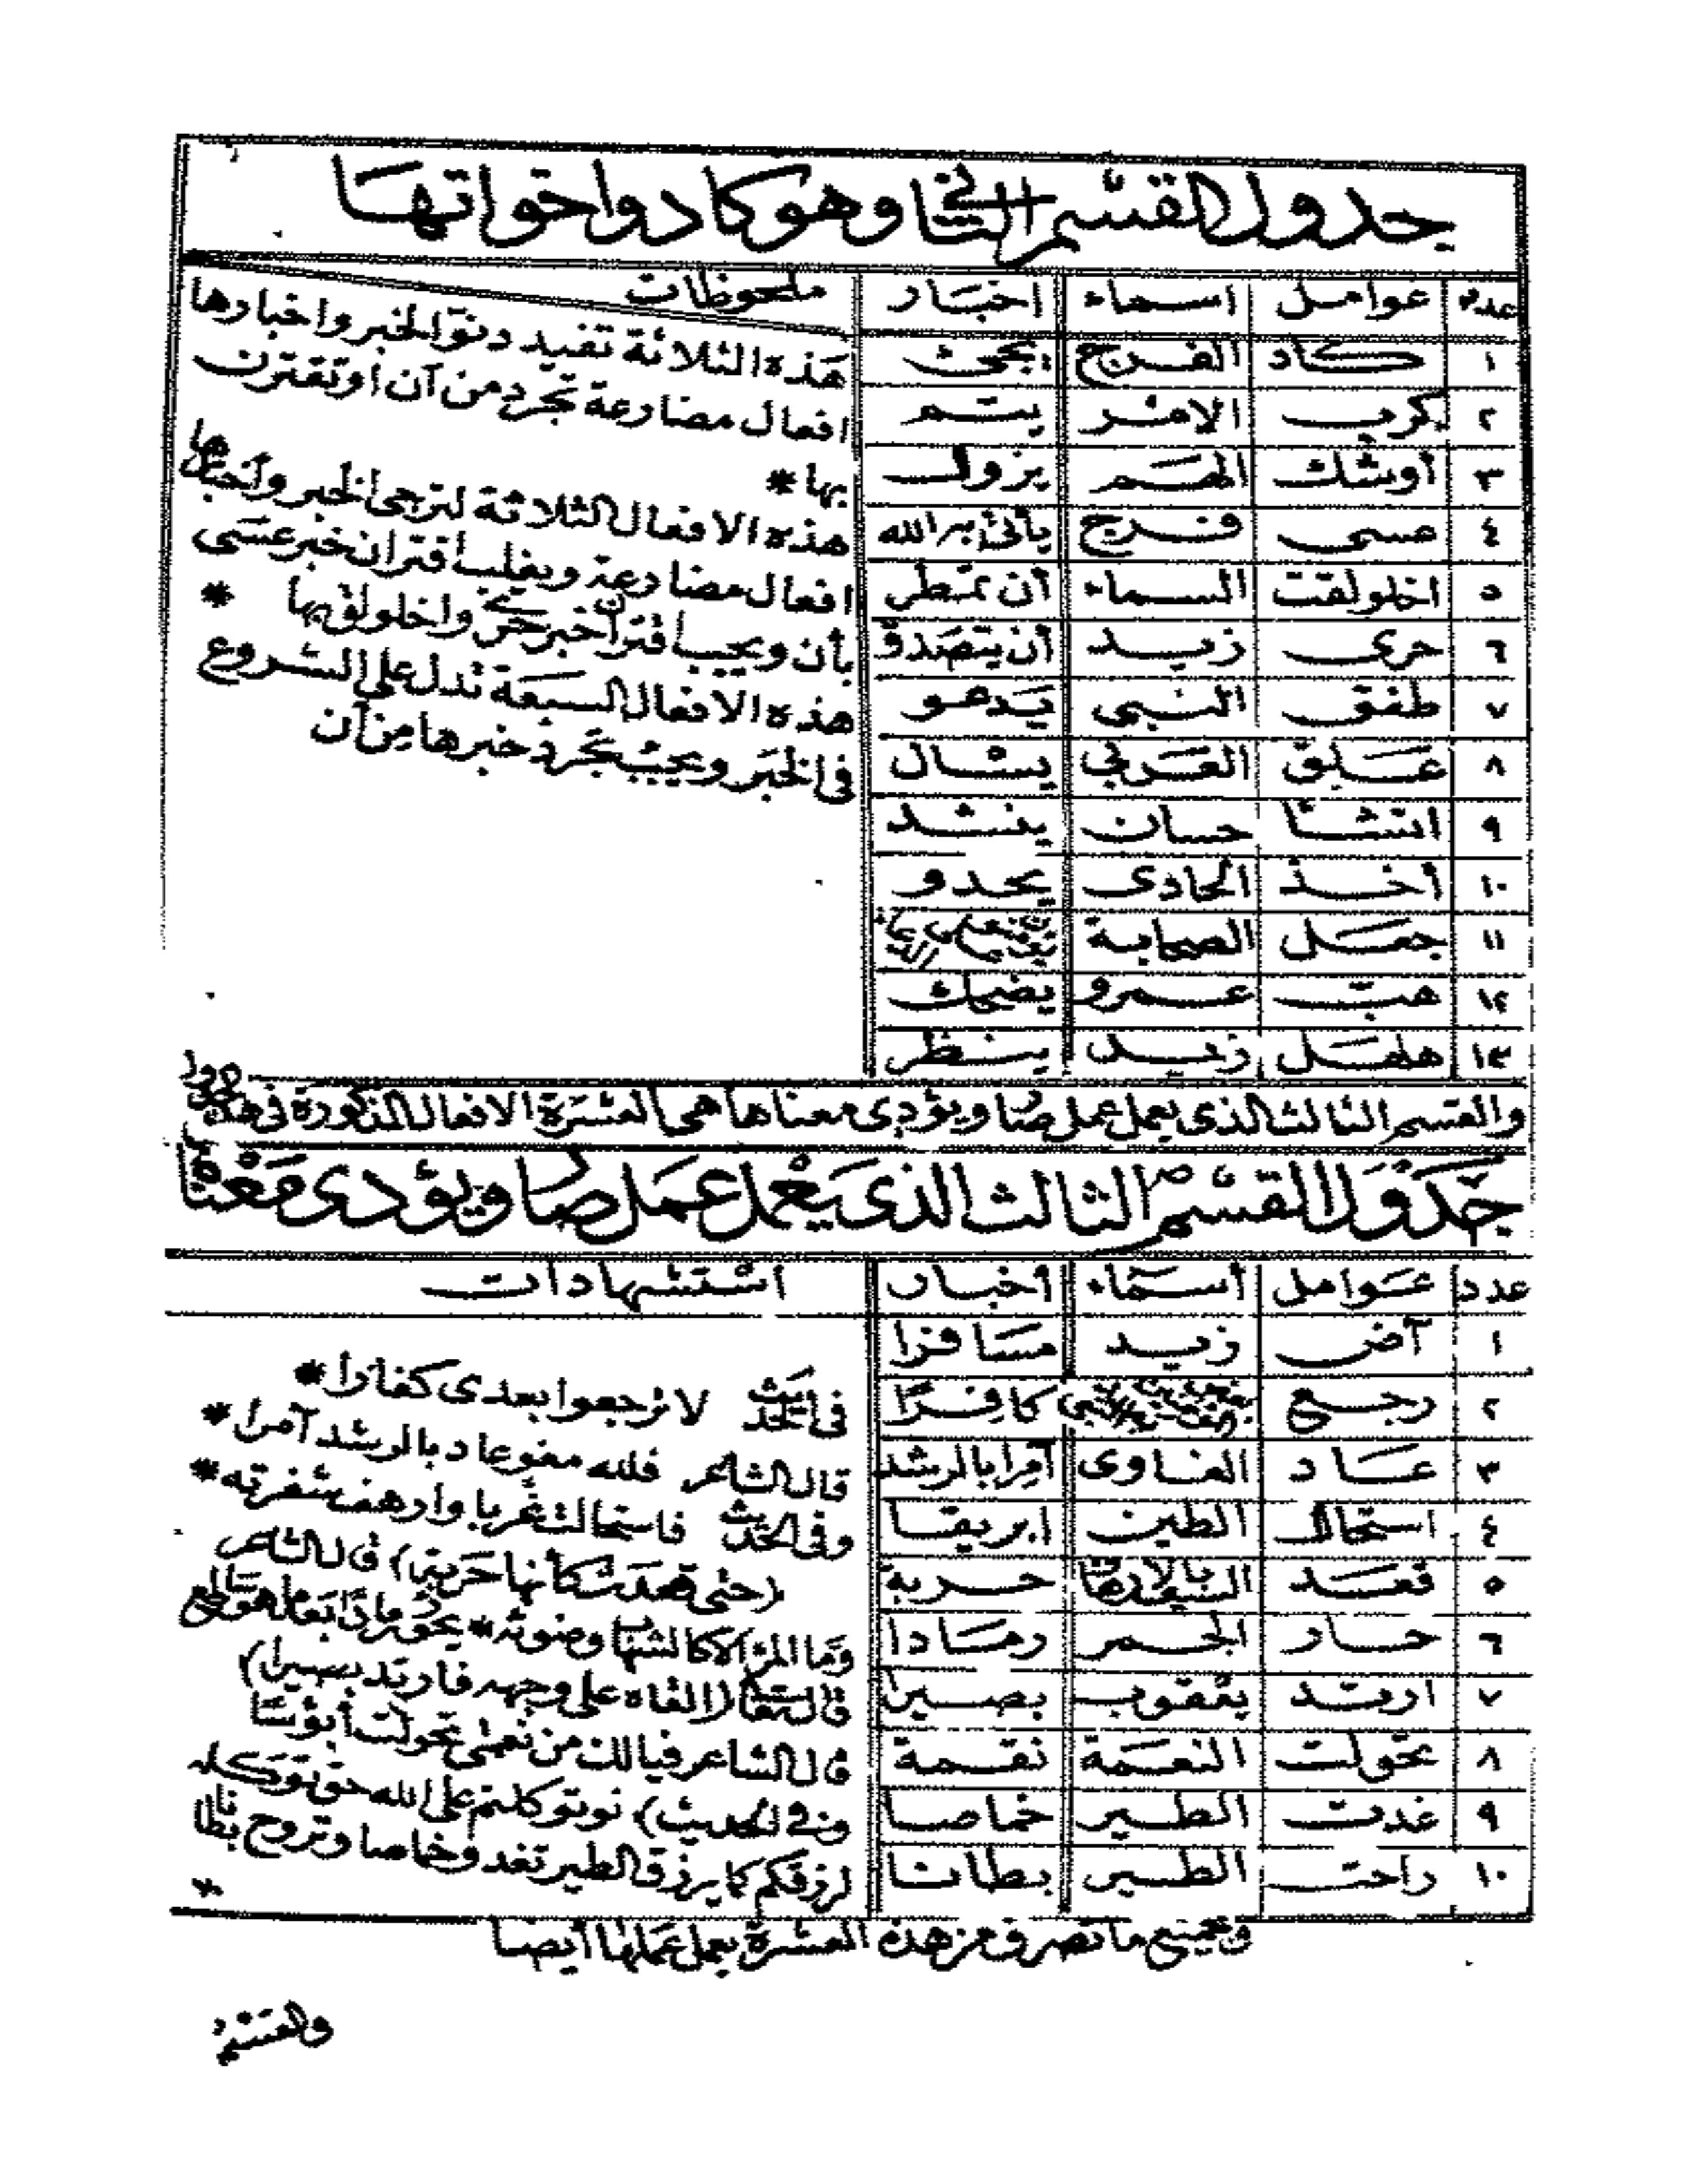 جدول القسم الثاني وهو كاد واخواتها
عدد عوامل اسماء اخبار ملحوظات
١ كاد الفرج يجئ
٢ كرب الامر يتم
٣ أوشك الهم يزول
٤ عسى فرج يأتي به الله
٥ اخلولقت السماء أن تمطر
٦ حرى زيد أن يتصدق
٧ طفق النبى يدعو
٨ علق العربي يسأل
٩ انشأ حسان ينشد
١٠ أخذ الحادى يحدو
١١ جعل الصحابة
١٢ هب عمرو يضحك
١٣ هلهل زيد ينظر
هذه الثلاثة تفيد دنو الخبر واخبارها
افعال مضارعة تجرد من آن أو تقترن
بها *
هذه الافعال الثلاثة لترجى الخبر وأخبارها
افعال مضارعة ويغلب اقتران خبر عسى
بأن ويجب اقتران خبر حرى واخلولق بها *
هذه الافعال السبعة تدل على الشروع
فى الخبر ويجب تجرد خبرها من آن
والقسم الثالث الذى يعمل عمل صار ويؤدى معناها هى العشرة الافعال المذكورة فى هذا
جدول القسم الثالث الذى يعمل عمل صار ويؤدى معناها
عدد عوامل أسماء أخبار استشهادات
١ آض زيد مسافرا
٢ رجع كافرًا
٣ عاد الغاوى آمرا بالرشد
٤ استحال الطين ابريقا
٥ قعد حربة
٦ حار الجمر رمادا
٧ ارتد يعقوب بصيرا
٨ تحولت النعمة نقمة
٩ غدت الطير خماصا
١٠ راحت الطير بطانا
فى الحديث لا ترجعوا بعدى كفارا *
قال الشاعر فلله مغو عاد بالرشد آمرا *
وفى الحديث فاستحالت غربا وارهف شفرته *
(حتى قعدت كأنها حربة) قال الشاعر
وما المرء الا كالشهاب وضوئه * يحور رمادا بعد ما هو ساطع
قال تعالى (القاه على وجهه فارتد بصيرا)
قال الشاعر فيالك من نعمى تحولت أبؤسا
وفى الحديث) لو توكلتم على الله حق توكله
لرزقكم كما يرزق الطير تغدو خماصا وتروح بطانا
*
وجميع ما تصرف من هذه العشرة يعمل عملها أيضا